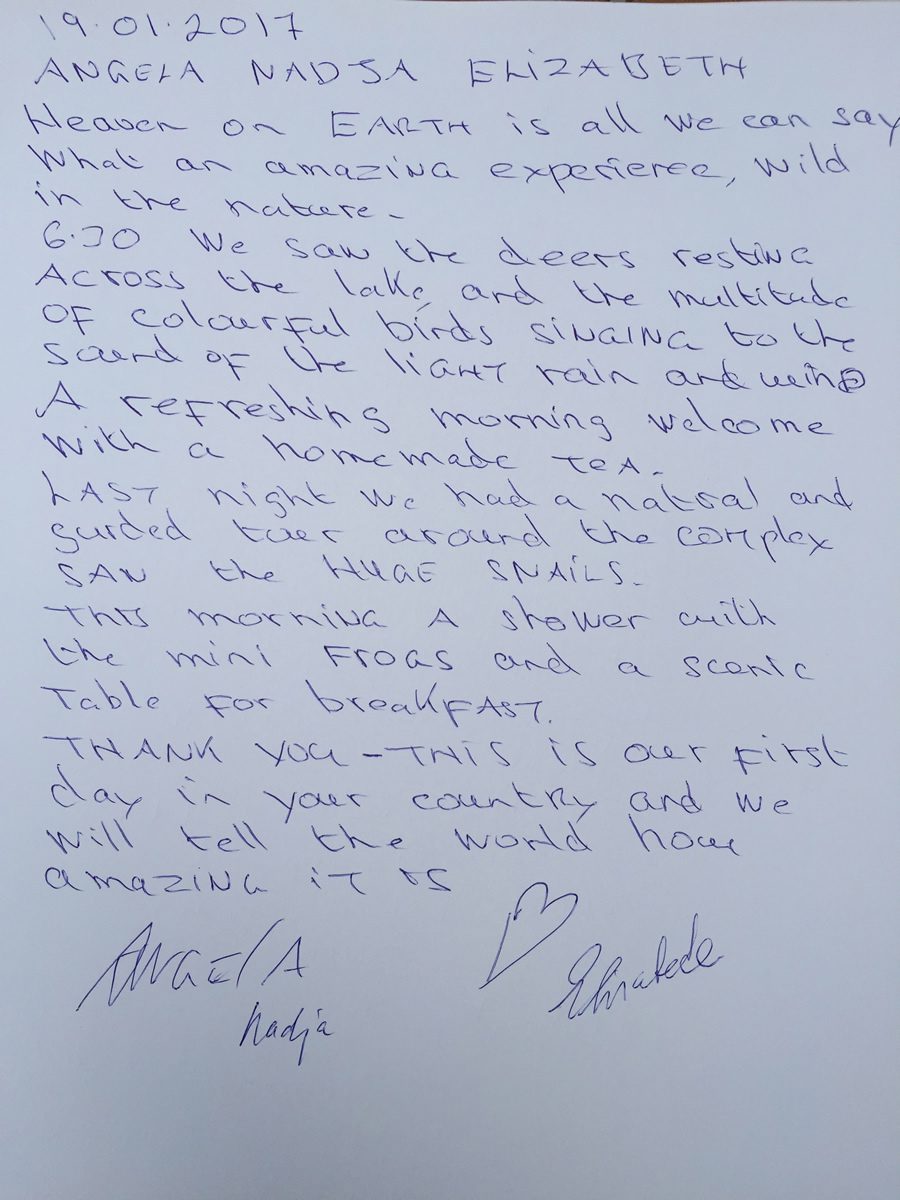 19.01.2017
ANGELA NADJA ELIZABETH
Heaven on EARTH is all we can say
What an amazing experience, wild
in the nature.
6.30 We saw the deers resting
Across the lake and the multitude
OF colourful birds SINGING to the
sound OF the LIGHT rain and wind
A refreshing morning welcome
with a homemade TEA.
LAST night we had a natral and
guided tour around the complex
SAW the HUGE SNAILS.
This morning A shower with
the mini FROGS and a scenic
Table FOR breakFAST.
THANK YOU - THIS is our first
day in your country and we
will tell the world how
amazing IT IS
ANGELA
Nadja